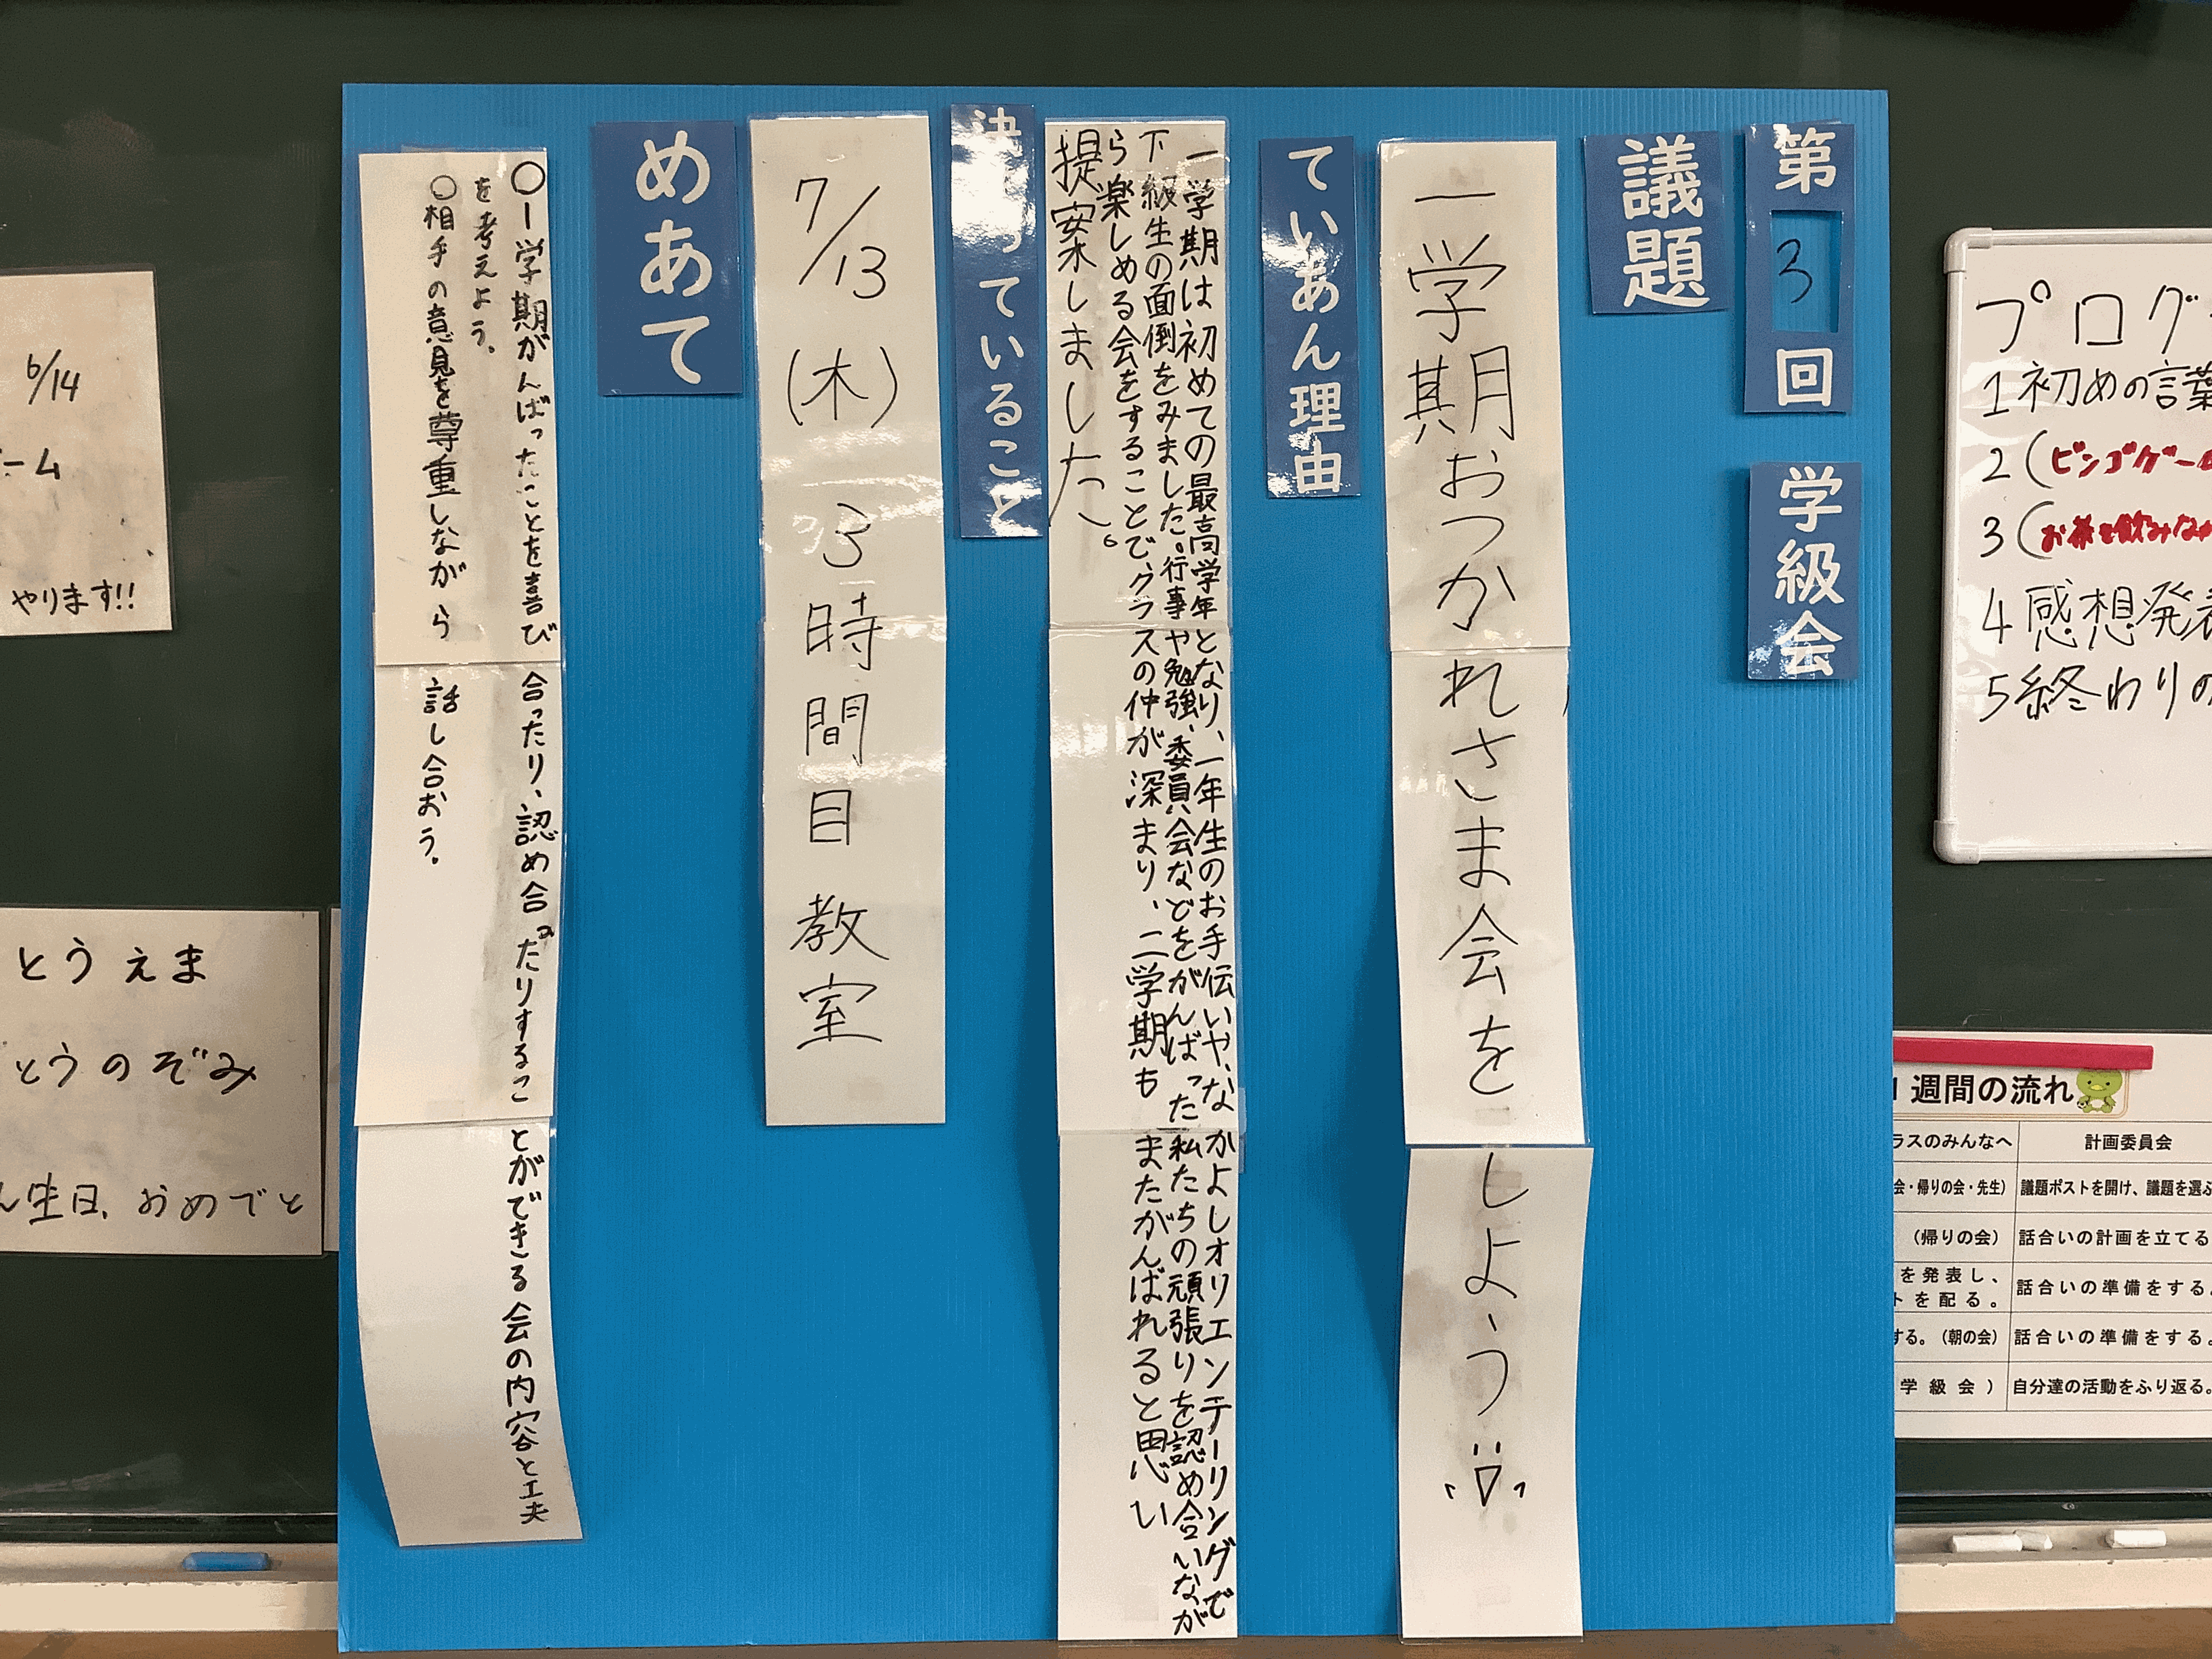 第3回
学級会
議題
一学期おつかれさま会をしよう
ていあん理由
一学期は初めての最高学年となり、一年生のお手伝いや、なかよしオリエンテーリングで
下級生の面倒をみました。行事や勉強、委員会などをがんばった私たちの頑張りを認め合いなが
ら楽しめる会をすることで、クラスの仲が深まり、二学期もまたがんばれると思い
提案しました。
決まっていること
7/13(木) 3時間目 教室
めあて
○一学期がんばったことを喜び合ったり、認め合ったりすることができる会の内容と工夫
を考えよう。
○相手の意見を尊重しながら話し合おう。
プログ
1 初めの言葉
2(ビンゴゲーム
3(お茶を飲みなが
4 感想発表
5 終わりの
6/14
ーム
やります!!
とうえま
とうのぞみ
ん生日、おめでと
1週間の流れ
ラスのみんなへ 計画委員会
会・帰りの会・先生) 議題ポストを開け、議題を選ぶ
(帰りの会) 話合いの計画を立てる
を発表し、
トを配る。 話合いの準備をする。
する。(朝の会) 話合いの準備をする。
学級会) 自分達の活動をふり返る。